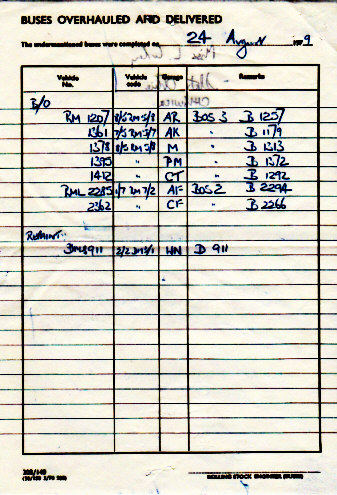 BUSES OVERHAULED AND DELIVERED
The undermentioned buses were completed on 24 August 9
Vehicle No. Vehicle code Garage Remarks
B/O
RM 1207 8/5 RM 5/8 AR BOS 3 B 1257
1361 7/5 RM 5/7 AK " B 1179
1378 8/5 RM 5/8 M " B 1313
1395 " PM " B 1372
1412 " CT " B 1292
RML 2285 1/7 RM 7/2 AF BOS 2 B 2294
2362 " CF " B 2266
REPAINT:-
911 WN D 911
ROLLING STOCK ENGINEER (BUSES)